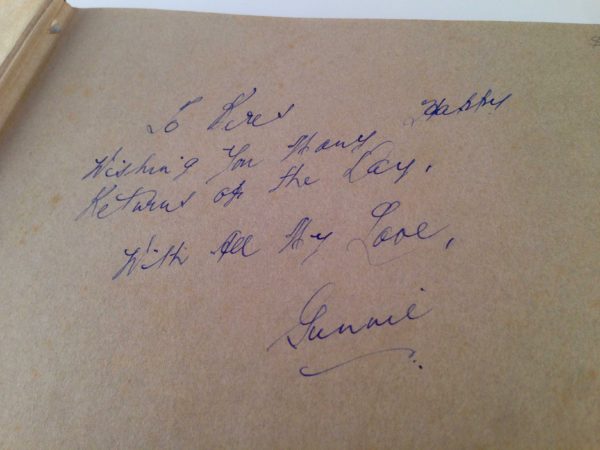 To Vires
Wishing You Many Happy
Returns of the Day.
With All My Love,
Gunnie